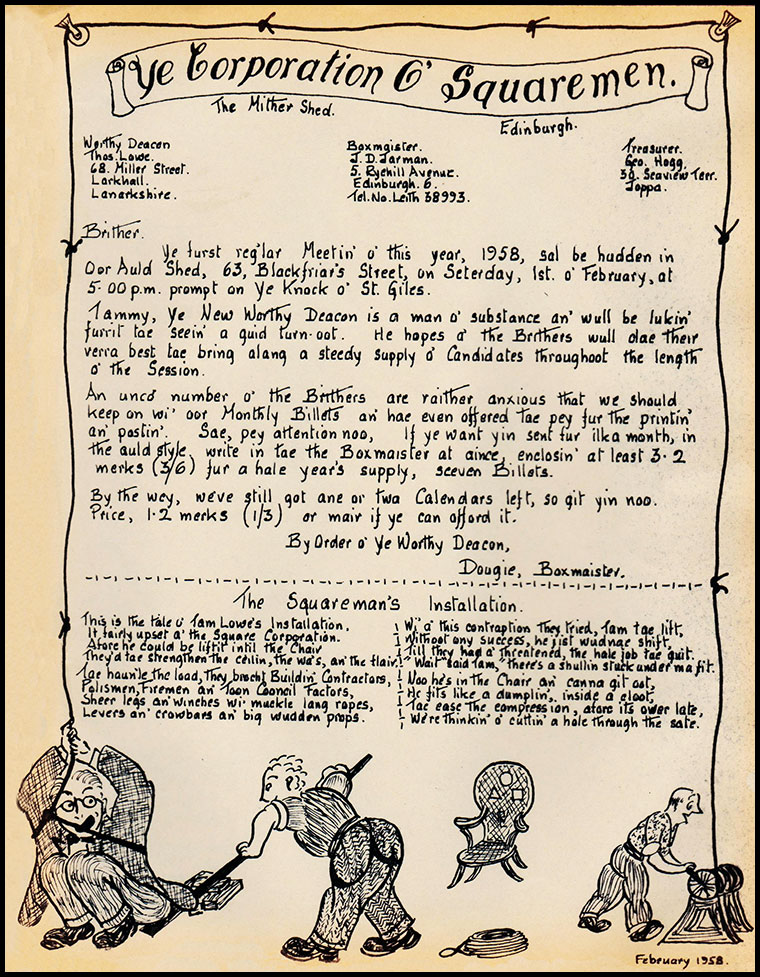 Ye Corporation O' Squaremen.
The Mither Shed.
Edinburgh.
Worthy Deacon
Thos. Lowe.
68. Miller Street.
Larkhall.
Lanarkshire.
Boxmaister.
J. D. Jarman.
5. Ryehill Avenue.
Edinburgh. 6.
Tel. No. Leith 38993.
Treasurer.
Geo. Hogg.
30. Seaview Terr.
Joppa.
Brither.
Ye furst reg'lar Meetin' o' this year, 1958, sal be hudden in
Oor Auld Shed, 63, Blackfriar's Street, on Seterday, 1st. o' February, at
5.00 p.m. prompt on Ye Knock o' St. Giles.
Tammy, Ye New Worthy Deacon is a man o' substance an' wull be lukin'
furrit tae seein' a guid turn-oot. He hopes a' the Brithers wull dae their
verra best tae bring alang a steedy supply o' Candidates throughoot the length
o' the Session.
An unco number o' the Brithers are raither anxious that we should
keep on wi' oor Monthly Billets an' hae even offered tae pey fur the printin'
an' postin'. Sae, pey attention noo, If ye want yin sent fur ilka month, in
the auld style, write in tae the Boxmaister at aince, enclosin' at least 3.2
merks (3/6) fur a hale year's supply, seeven Billets.
By the wey, we've still got ane or twa Calendars left, so git yin noo.
Price, 1.2 merks (1/3) or mair if ye can afford it.
By Order o' Ye Worthy Deacon,
Dougie, Boxmaister.
The Squareman's Installation.
This is the tale o' Tam Lowe's Installation.
It fairly upset a' the Square Corporation.
Afore he could be liftit intil the Chair
They'd tae strengthen the ceilin, the wa's, an' the flair.
Tae haun'le the load, They brocht Buildin' Contractors,
Polismen, Firemen an' Toon Cooncil Factors,
Sheer legs an' winches wi' muckle lang ropes,
Levers an' crowbars an' big wudden props.
Wi' a' this contraption They tried, Tam tae lift,
Without ony success, he jist wudnae shift,
Till they had a' threatened, the hale job tae quit.
"Wait" said Tam, "there's a shullin stuck under ma fit.
Noo he's in the Chair an' canna git oot,
He fits like a dumplin', inside a cloot,
Tae ease the compression, afore its ower late,
We're thinkin' o' cuttin' a hole through the sate.
February 1958.